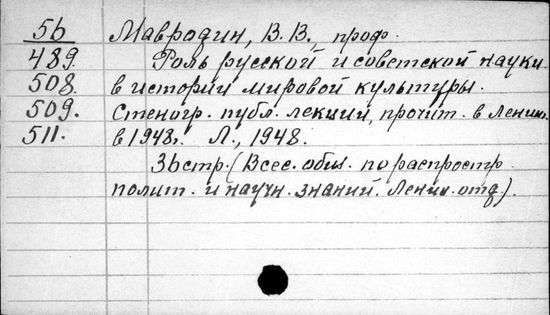 5б Мавродин, В.В., проф.
489. Роль русской и советской науки
508. в истории мировой культуры.
509. Стеногр. публ. лекции, прочит. в Ленинг.
511. в 1948г. Л., 1948.
36стр. (Всес. общ. по распростр.
полит. и научн. знаний. Ленин. отд.)